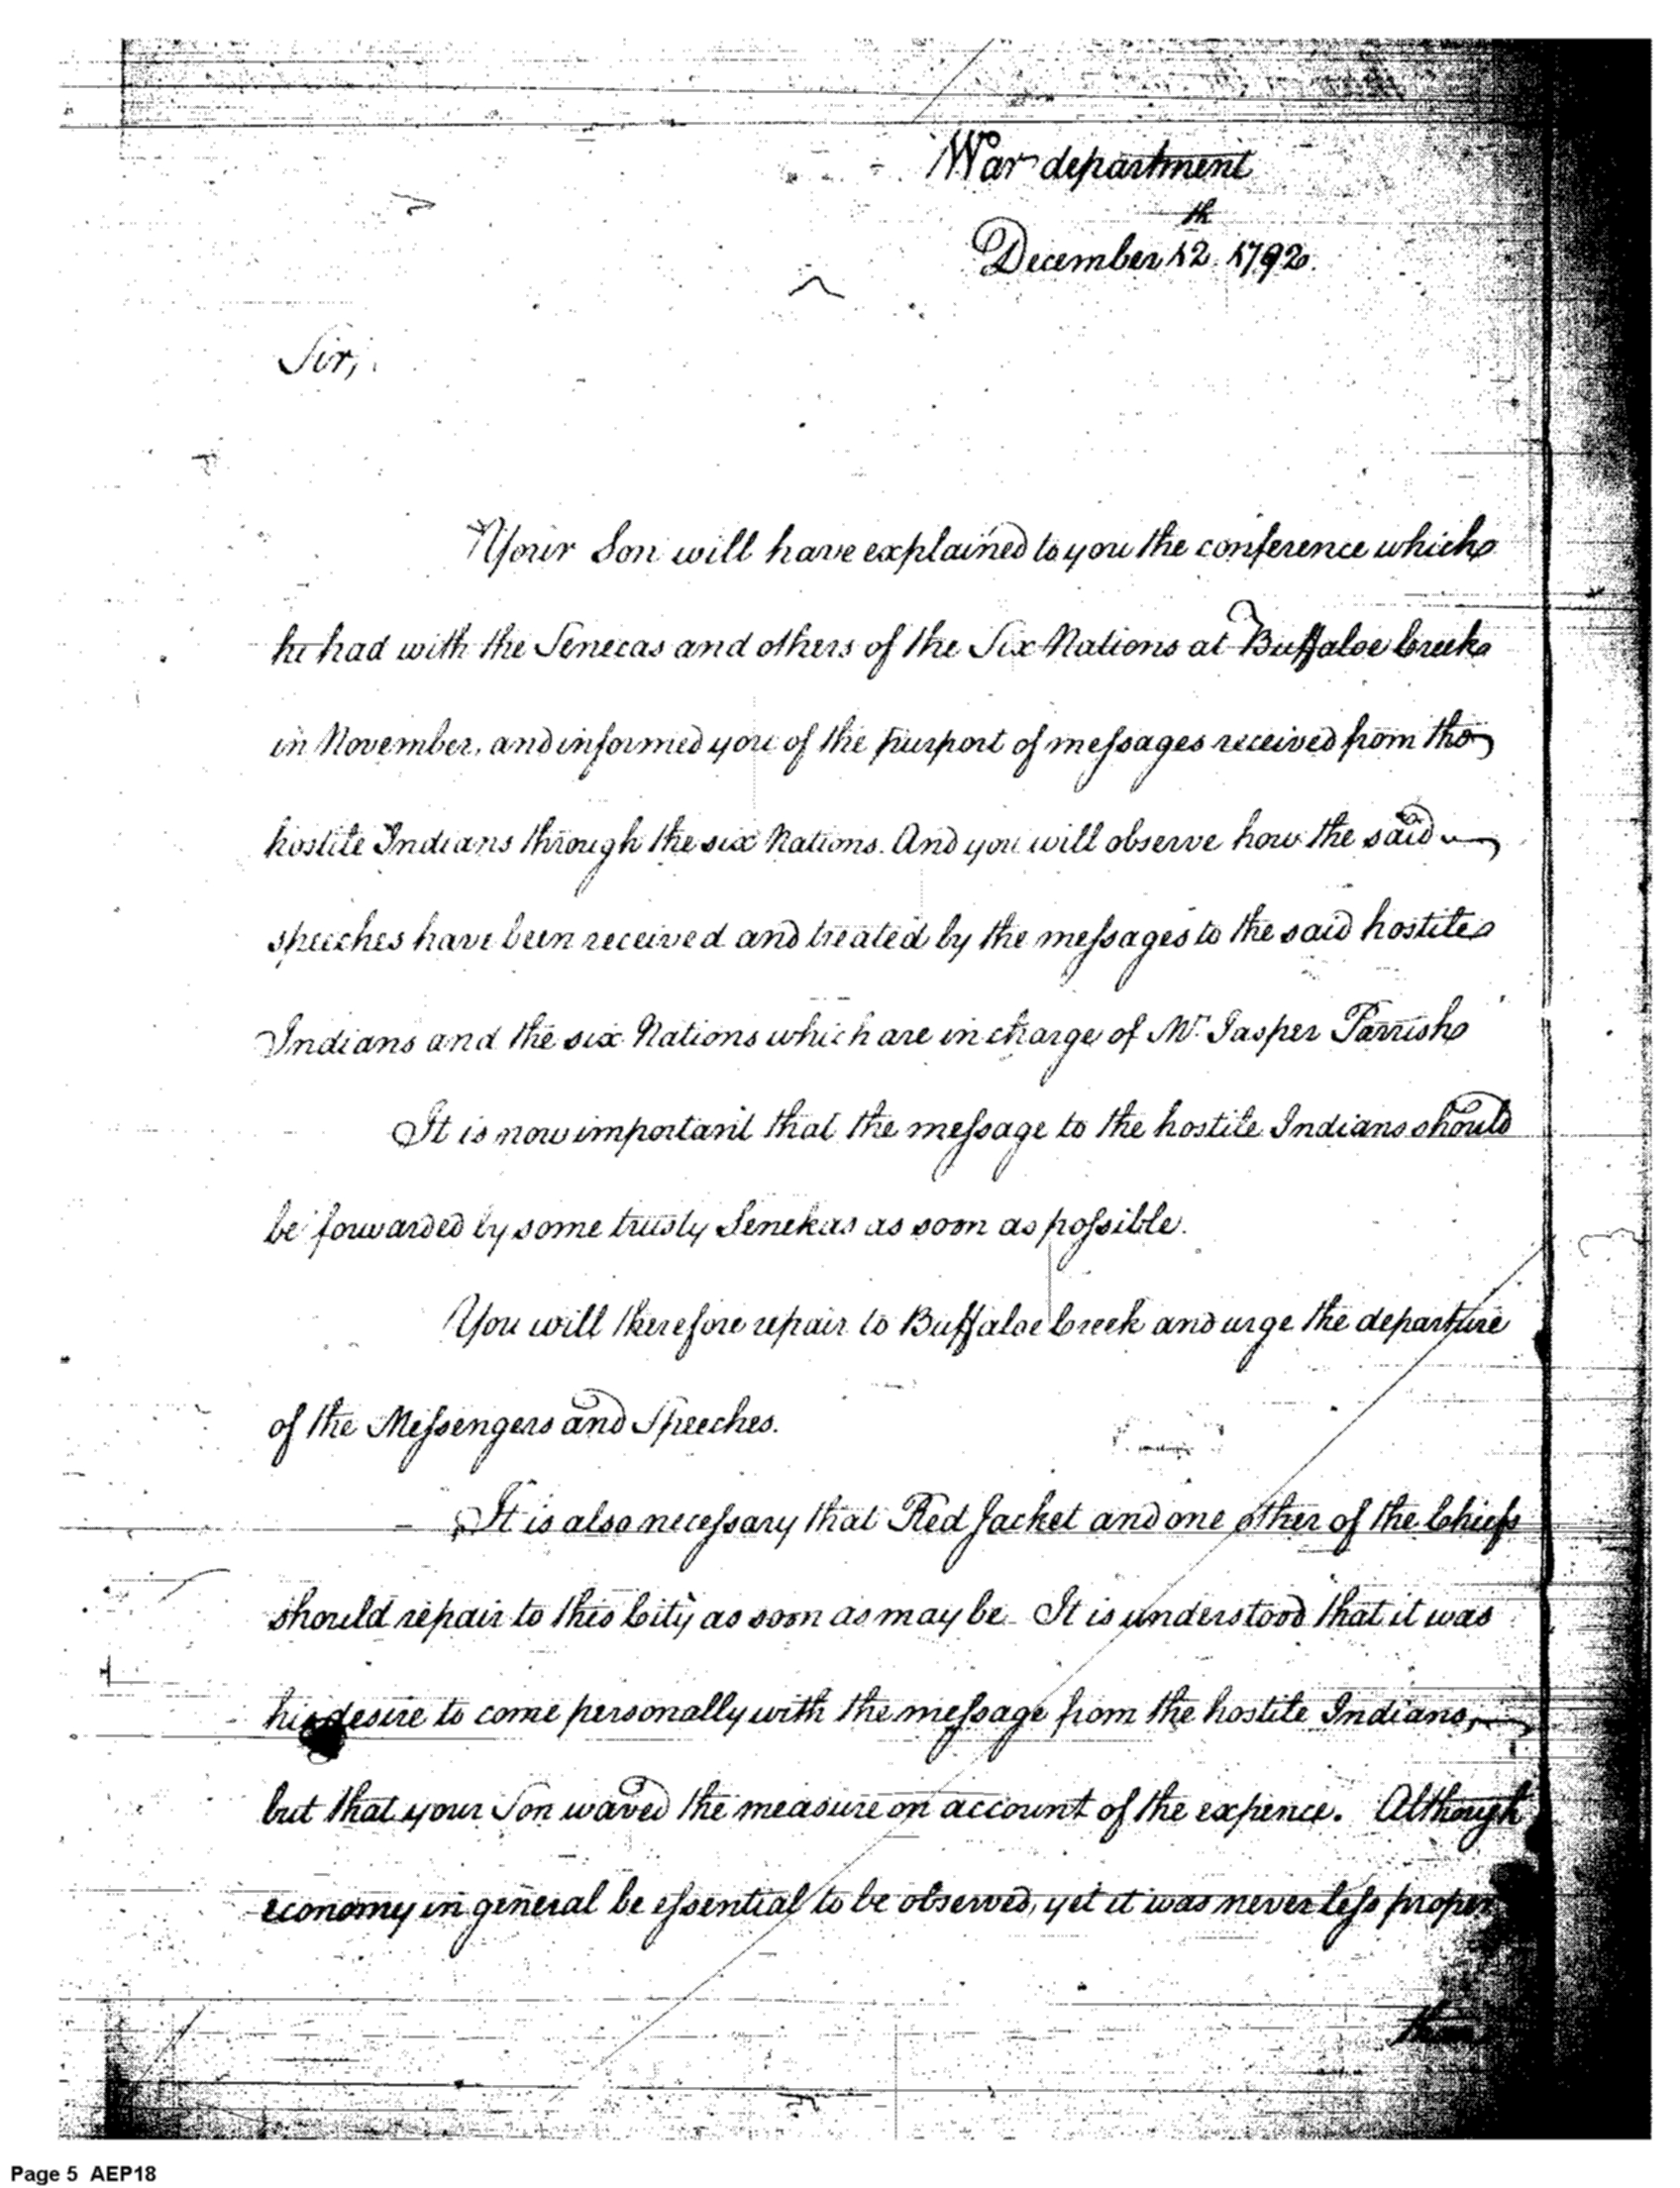 War department
December 12th 1792.
Sir,
Your Son will have explained to you the conference which
he had with the Senecas and others of the Six Nations at Buffaloe Creek
in November, and informed you of the purport of messages received from the
hostile Indians through the six Nations. And you will observe how the said
speeches have been received and treated by the messages to the said hostile
Indians and the six Nations which are in charge of Mr. Jasper Parrish
It is now important that the message to the hostile Indians should
be forwarded by some trusty Senekas as soon as possible.
You will therefore repair to Buffaloe Creek and urge the departure
of the Messengers and Speeches.
It is also necessary that Red Jacket and one other of the Chiefs
should repair to this City as soon as may be It is understood that it was
his desire to come personally with the message from the hostile Indians,
but that your Son waved the measure on account of the expence. Although
economy in general be essential to be observed, yet it was never less proper
than
Page 5 AEP18